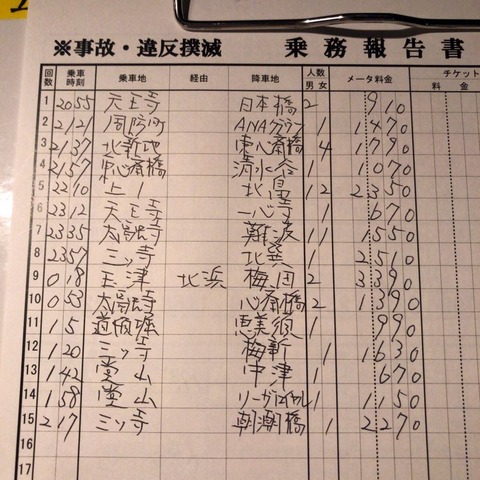 ※事故・違反撲滅 乗務報告書
回数 乗車時刻 乗車地 経由 降車地 人数 男 女 メータ料金 チケット 料 金
1 20 55 天王寺 日本橋 2 910
2 21 21 周防町 ANAクラウン 1 1470
3 21 37 北新地 東心斎橋 4 1790
4 21 57 東心斎橋 清水谷 1 1070
5 22 10 上1 北皇 1 2 2350
6 23 12 天王寺 一心寺 1 670
7 23 35 太融寺 難波 1 1 1550
8 23 57 三ッ寺 北巽 1 2510
9 0 18 玉津 北浜 梅田 2 3390
10 0 53 太融寺 心斎橋 2 1390
11 1 5 道頓堀 恵美須 1 990
12 1 20 三ッ寺 梅新 1 1630
13 1 42 堂山 中津 1 670
14 1 58 堂山 リーガロイヤル 1 1150
15 2 17 三ッ寺 朝潮橋 1 2270
16
17